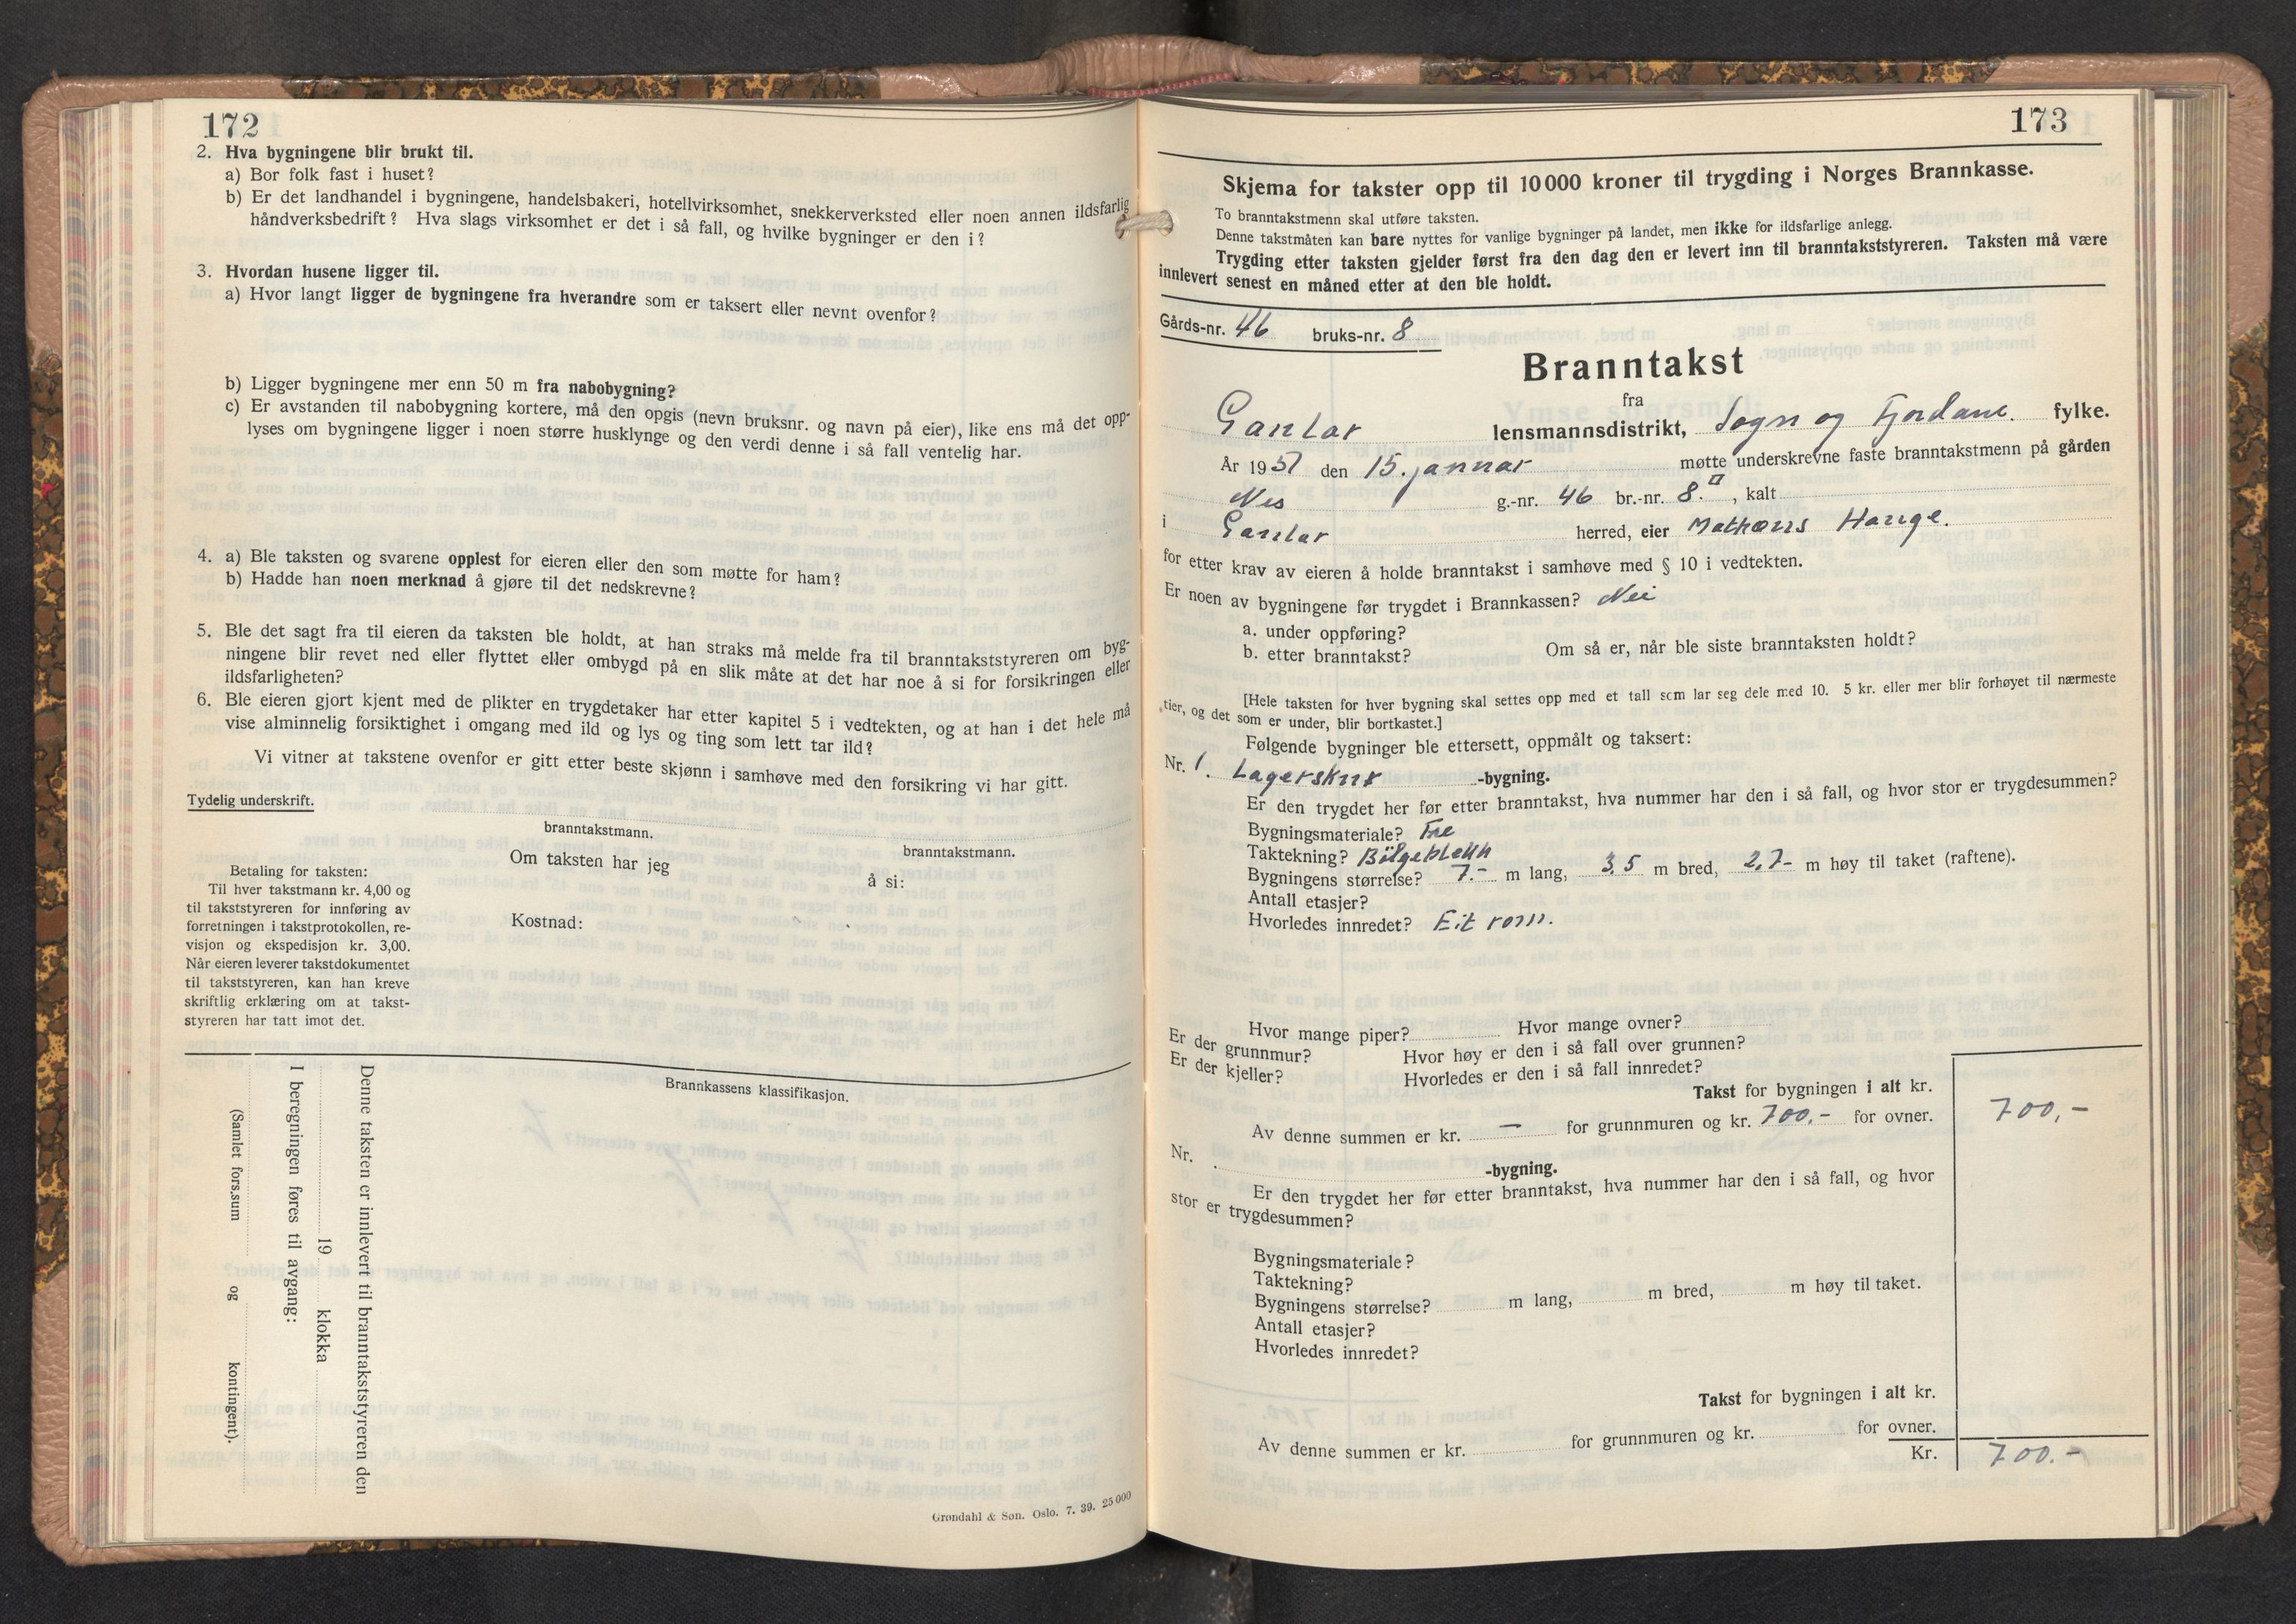 172
2. Hva bygningene blir brukt til.
a) Bor folk fast i huset?
b) Er det landhandel i bygningene, handelsbakeri, hotellvirksomhet, snekkerverksted eller noen annen ildsfarlig
håndverksbedrift? Hva slags virksomhet er det i så fall, og hvilke bygninger er den i?
3. Hvordan husene ligger til.
a) Hvor langt ligger de bygningene fra hverandre som er taksert eller nevnt ovenfor?
b) Ligger bygningene mer enn 50 m fra nabobygning?
c) Er avstanden til nabobygning kortere, må den opgis (nevn bruksnr. og navn på eier), like ens må det opp-
lyses om bygningene ligger i noen større husklynge og den verdi denne i så fall ventelig har.
4. a) Ble taksten og svarene opplest for eieren eller den som møtte for ham?
b) Hadde han noen merknad å gjøre til det nedskrevne?
5. Ble det sagt fra til eieren da taksten ble holdt, at han straks må melde fra til branntakststyreren om byg-
ningene blir revet ned eller flyttet eller ombygd på en slik måte at det har noe å si for forsikringen eller
ildsfarligheten?
6. Ble eieren gjort kjent med de plikter en trygdetaker har etter kapitel 5 i vedtekten, og at han i det hele må
vise alminnelig forsiktighet i omgang med ild og lys og ting som lett tar ild?
Vi vitner at takstene ovenfor er gitt etter beste skjønn i samhøve med den forsikring vi har gitt.
Tydelig underskrift.
branntakstmann.
branntakstmann.
Om taksten har jeg
å si:
Kostnad:
Betaling for taksten:
Til hver takstmann kr. 4,00 og
til takststyreren for innføring av
forretningen i takstprotokollen, re-
visjon og ekspedisjon kr. 3,00.
Når eieren leverer takstdokumentet
til takststyreren, kan han kreve
skriftlig erklæring om at takst-
styreren har tatt imot det.
Brannkassens klassifikasjon.
Denne taksten er innlevert til branntakststyreren den
19 klokka
I beregningen føres til avgang:
(Samlet fors.sum og kontingent).
Grøndahl & Søn. Oslo. 7. 39. 25 000
173
Skjema for takster opp til 10 000 kroner til trygding i Norges Brannkasse.
To branntakstmenn skal utføre taksten.
Denne takstmåten kan bare nyttes for vanlige bygninger på landet, men ikke for ildsfarlige anlegg.
Trygding etter taksten gjelder først fra den dag den er levert inn til branntakststyreren. Taksten må være
innlevert senest en måned etter at den ble holdt.
Gårds-nr. 46 bruks-nr. 8
Branntakst
fra
Gaular lensmannsdistrikt, Sogn og Fjordane. fylke.
År 1951 den 15. januar møtte underskrevne faste branntakstmenn på gården
Nes g.-nr. 46 br.-nr. 8. , kalt
i Gaular herred, eier Mathæus Hauge.
for etter krav av eieren å holde branntakst i samhøve med § 10 i vedtekten.
Er noen av bygningene før trygdet i Brannkassen? Nei
a. under oppføring?
b. etter branntakst? Om så er, når ble siste branntaksten holdt?
[Hele taksten for hver bygning skal settes opp med et tall som lar seg dele med 10. 5 kr. eller mer blir forhøyet til nærmeste
tier, og det som er under, blir bortkastet.]
Følgende bygninger ble ettersett, oppmålt og taksert:
Nr. 1. Lagerskur -bygning.
Er den trygdet her før etter branntakst, hva nummer har den i så fall, og hvor stor er trygdesummen?
Bygningsmateriale? Tre
Taktekning? Bølgeblekk
Bygningens størrelse? 7.- m lang, 3,5 m bred, 2,7- m høy til taket (raftene).
Antall etasjer?
Hvorledes innredet? Eit rom.
Hvor mange piper? Hvor mange ovner?
Er der grunnmur? Hvor høy er den i så fall over grunnen?
Er der kjeller? Hvorledes er den i så fall innredet?
Takst for bygningen i alt kr. 700,-
Av denne summen er kr. — for grunnmuren og kr. 700.- for ovner.
Nr. -bygning.
Er den trygdet her før etter branntakst, hva nummer har den i så fall, og hvor
stor er trygdesummen?
Bygningsmateriale?
Taktekning?
Bygningens størrelse? m lang, m bred, m høy til taket.
Antall etasjer?
Hvorledes innredet?
Takst for bygningen i alt kr.
Av denne summen er kr. for grunnmuren og kr. for ovner.
Kr. 700.-